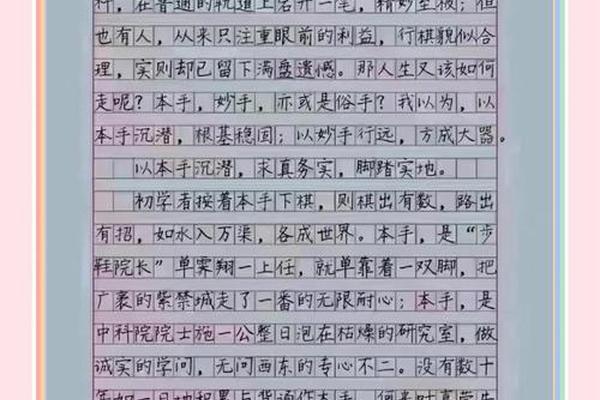 秤，在普通的轨道上名开一笔，精妙至极；但
也有人，从来只注重眼前的利益，行棋貌似合
理，实则却已留下满盘遗憾。那人生又该如何
走呢？本手，妙手，亦或是俗手？我以为，以
本手沉潜，根基稳固；以妙手行远，方成大器。
以本手沉潜，求真务实，脚踏实地。
初学者按着本手下棋，则棋出有数，路出
有招，如水入万渠，各成世界。本手，是“步
鞋院长”单霁翔一上任，就单靠着一双脚，把
广袤的紫禁城走了一番的无限耐心；本手，是
中科院院士施一公整日泡在枯燥的研究室，做
诚实的学问，无问西东的专心不二。没有数十
年如一日地积累与背诵作本手，何来叶嘉莹先